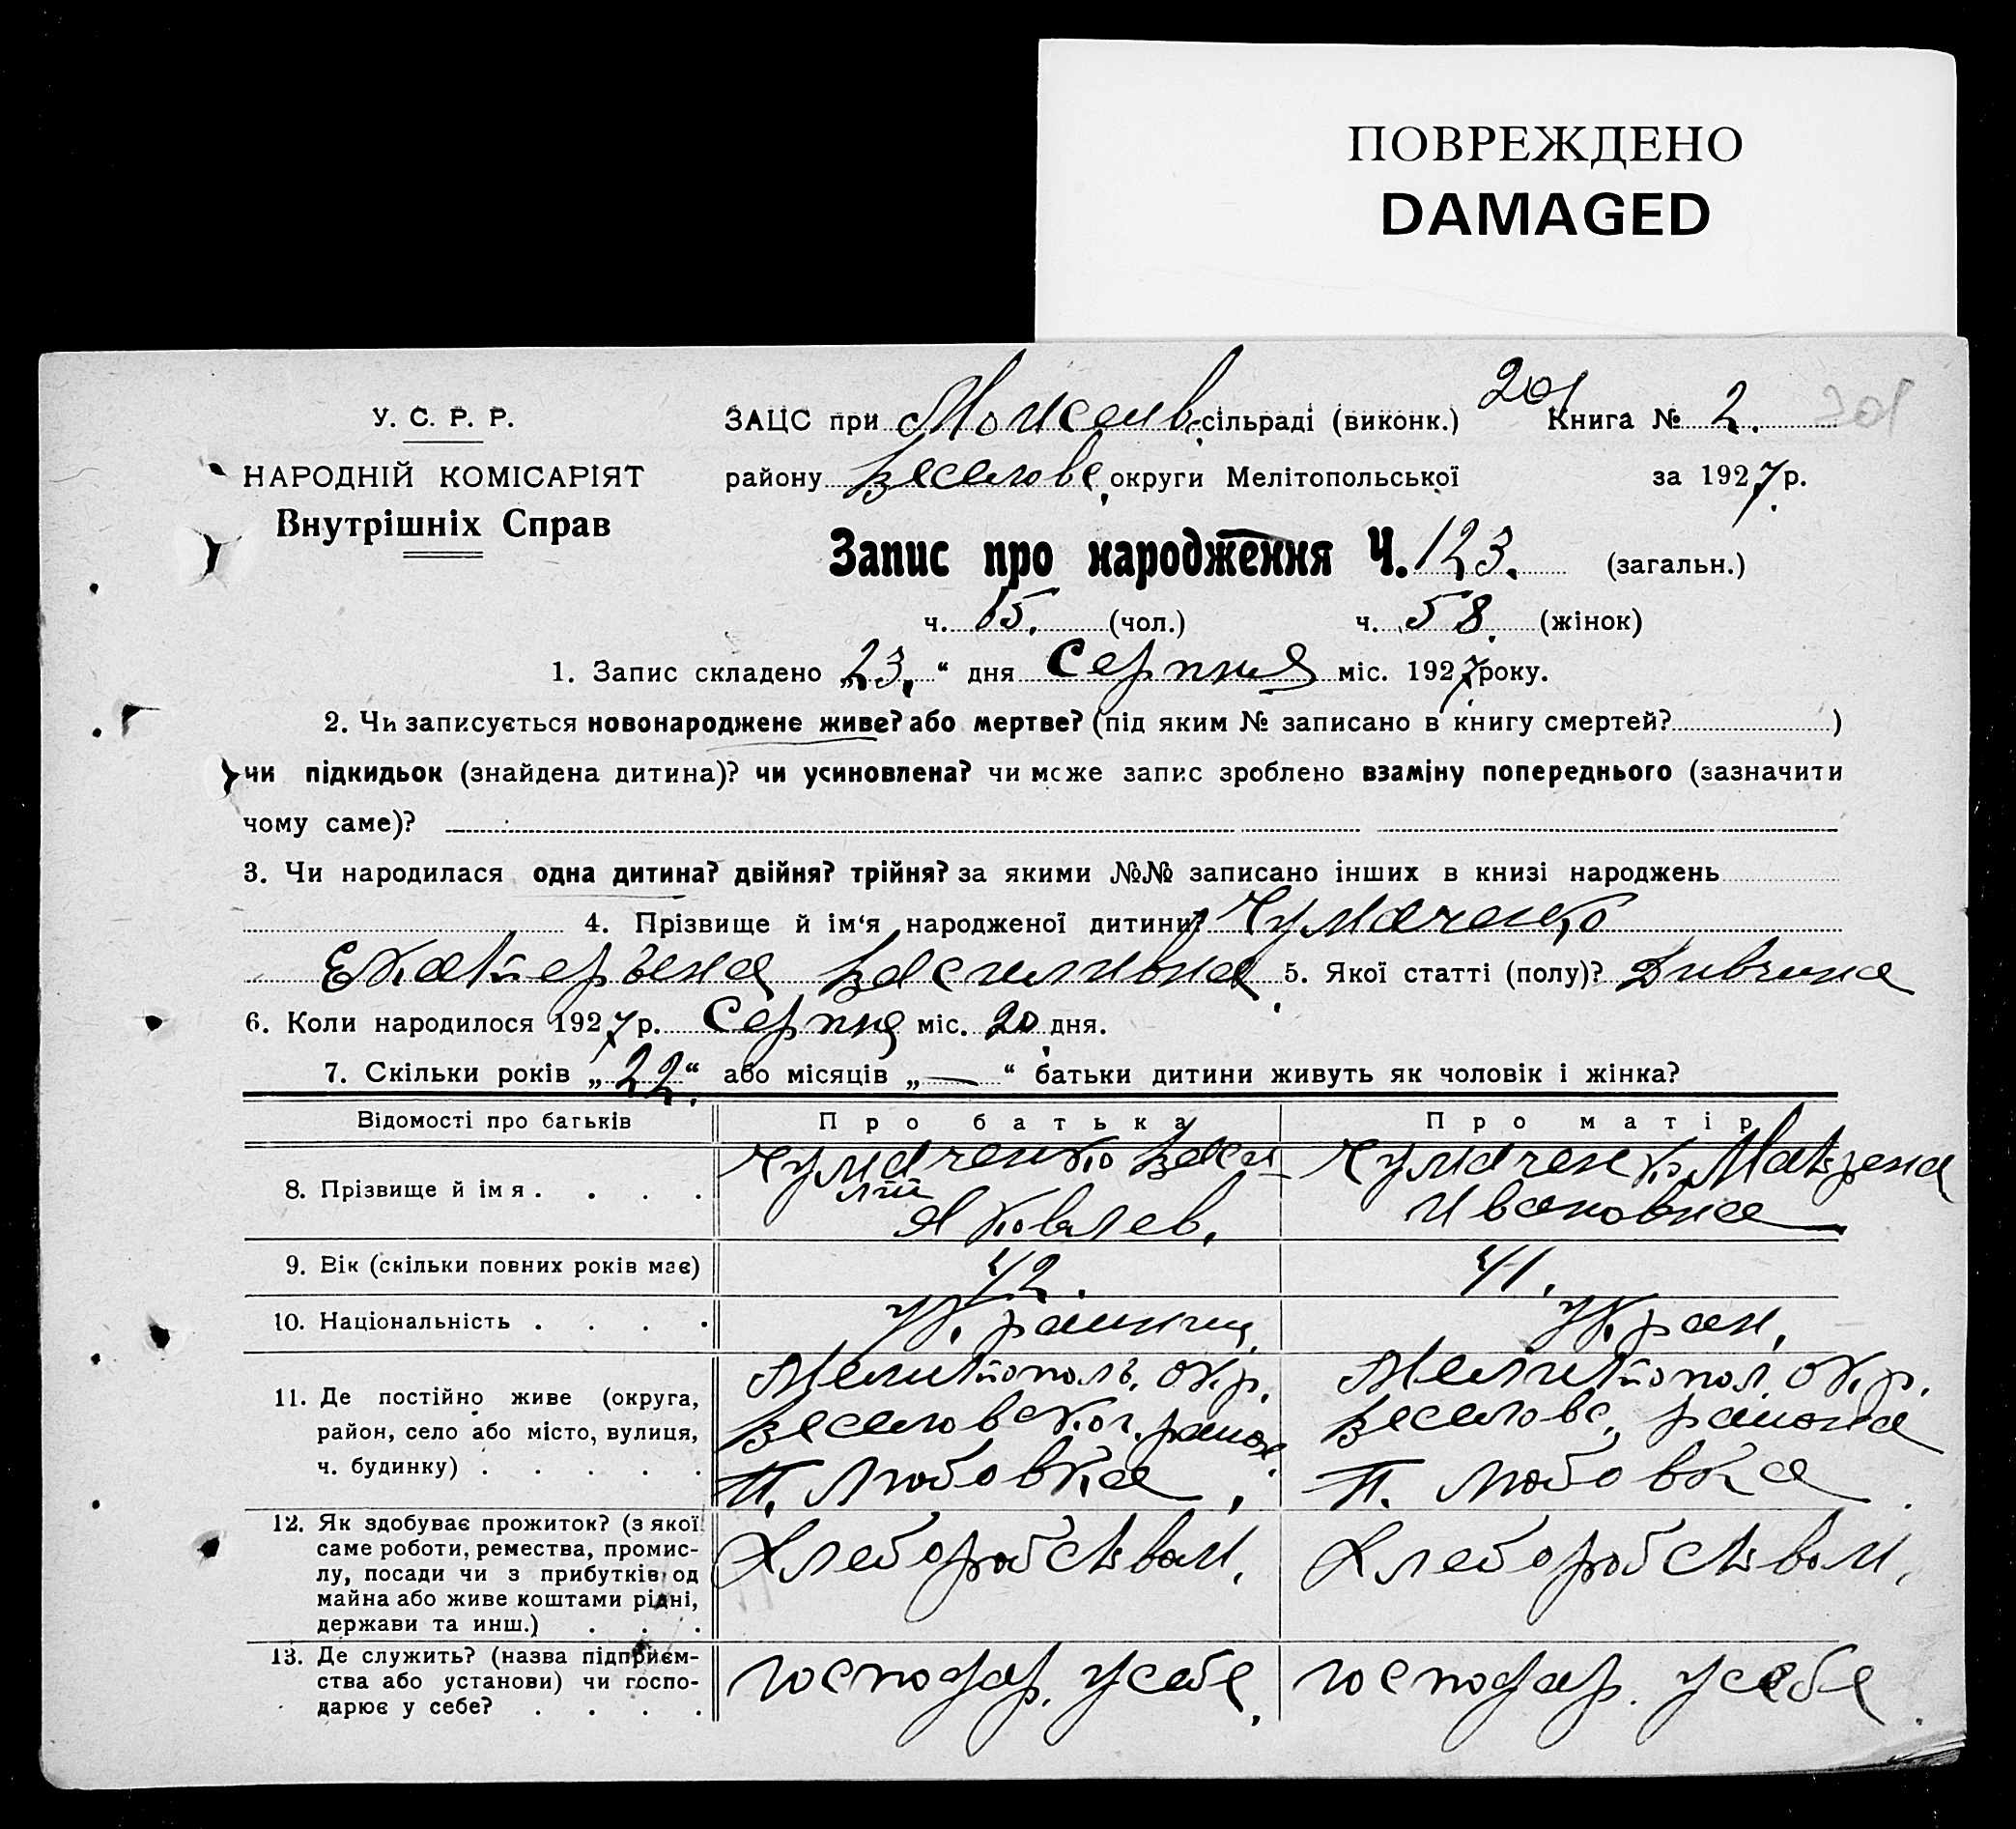 ПОВРЕЖДЕНО
DAMAGED
201
У. С. Р. Р.
НАРОДНІЙ КОМІСАРІЯТ
Внутрішніх Справ
ЗАЦС при сільраді (виконк.) Книга № 2. 201
району Веселовс. округи Мелітопольської за 1927 р.
Запис про народження Ч. 123. (загальн.)
ч. 65. (чол.) ч. 58. (жінок)
1. Запис складено „23.“ дня Серпня міс. 1927 року.
2. Чи записується новонароджене живе? або мертве? (під яким № записано в книгу смертей? )
чи підкидьок (знайдена дитина)? чи усиновлена? чи може запис зроблено взаміну попереднього (зазначити
чому саме)?
3. Чи народилася одна дитина? двійня? трійня? за якими №№ записано інших в книзі народжень
4. Прізвище й ім‘я народженої дитини? Чумаченко
Екатерина Василивна 5. Якої статті (полу)? Дивчина
6. Коли народилося 1927 р. Серпня міс. 20 дня.
7. Скільки років „22.“ або місяців „—“ батьки дитини живуть як чоловік і жінка?
Відомості про батьків Про батька Про матір
8. Прізвище й імя . . . . Чумаченко Васи- Чумаченко Матрена
лий Ивановна
Яковлев.
9. Вік (скільки повних років має) 42. 41.
10. Національність . . . . украинец укр. ан.
11. Де постійно живе (округа, Мелитополь. окр. Мелитопол. окр.
район, село або місто, вулиця, Веселовског. район. Веселовс. района
ч. будинку) . . . . . п. Любовка, п. Любовка
12. Як здобуває прожиток? (з якої Хлеборобством. Хлеборобством.
саме роботи, ремества, промис-
лу, посади чи з прибутків од
майна або живе коштами рідні,
держави та инш.) . . .
13. Де служить? (назва підприєм- господар. у себе. господар. у себе
ства або установи) чи госпо-
дарює у себе? . . . .